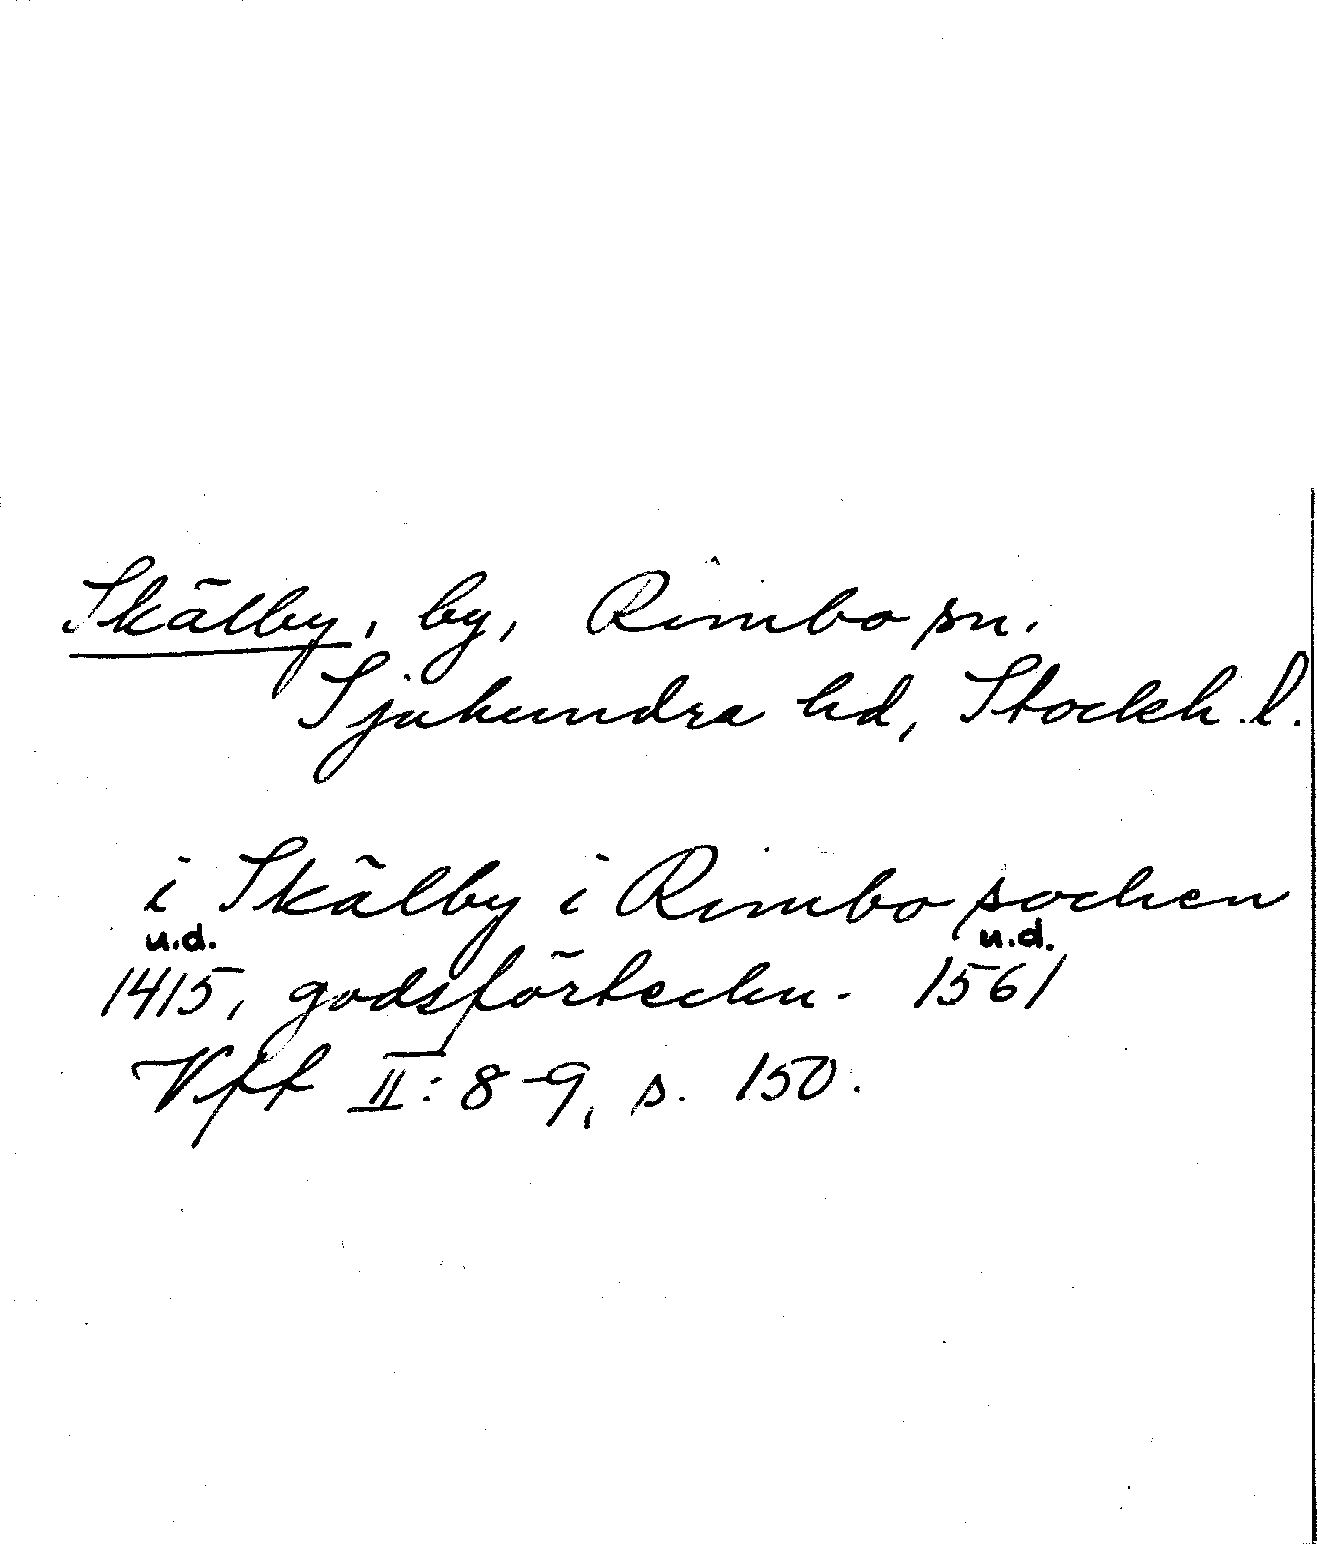 Skälby, by, Rimbo sn.
Sjuhundra hd, Stockh. l.
i Skälby i Rimbo socken
u.d. u.d.
1415, godsförteckn. 1561
Vff II: 8-9, s. 150.